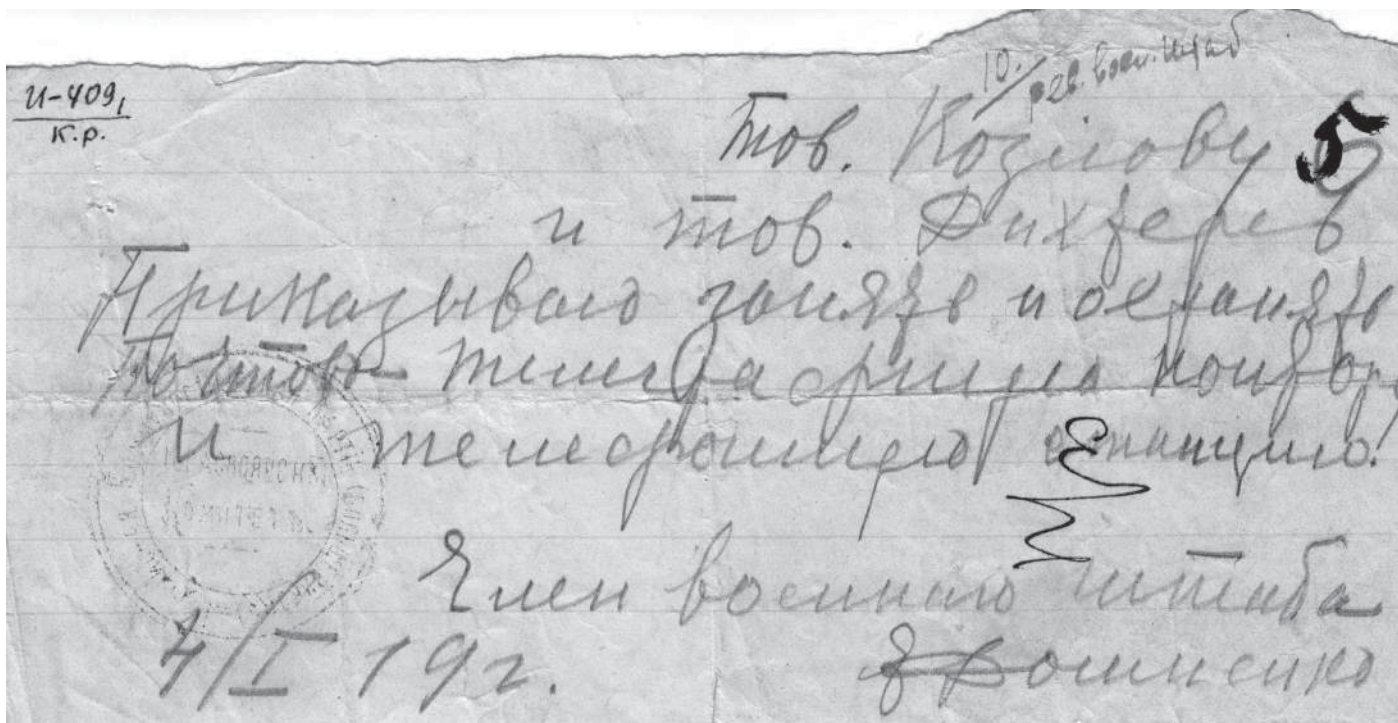 И-409,
к.р.
10.
рев. воен. штаб
5
Тов. Козлову
и тов. Рихтерев
Приказываю занять и охранять
Почтово-телеграфную контор
и телефонную станцию!
Член военного штаба
4/I 19г.